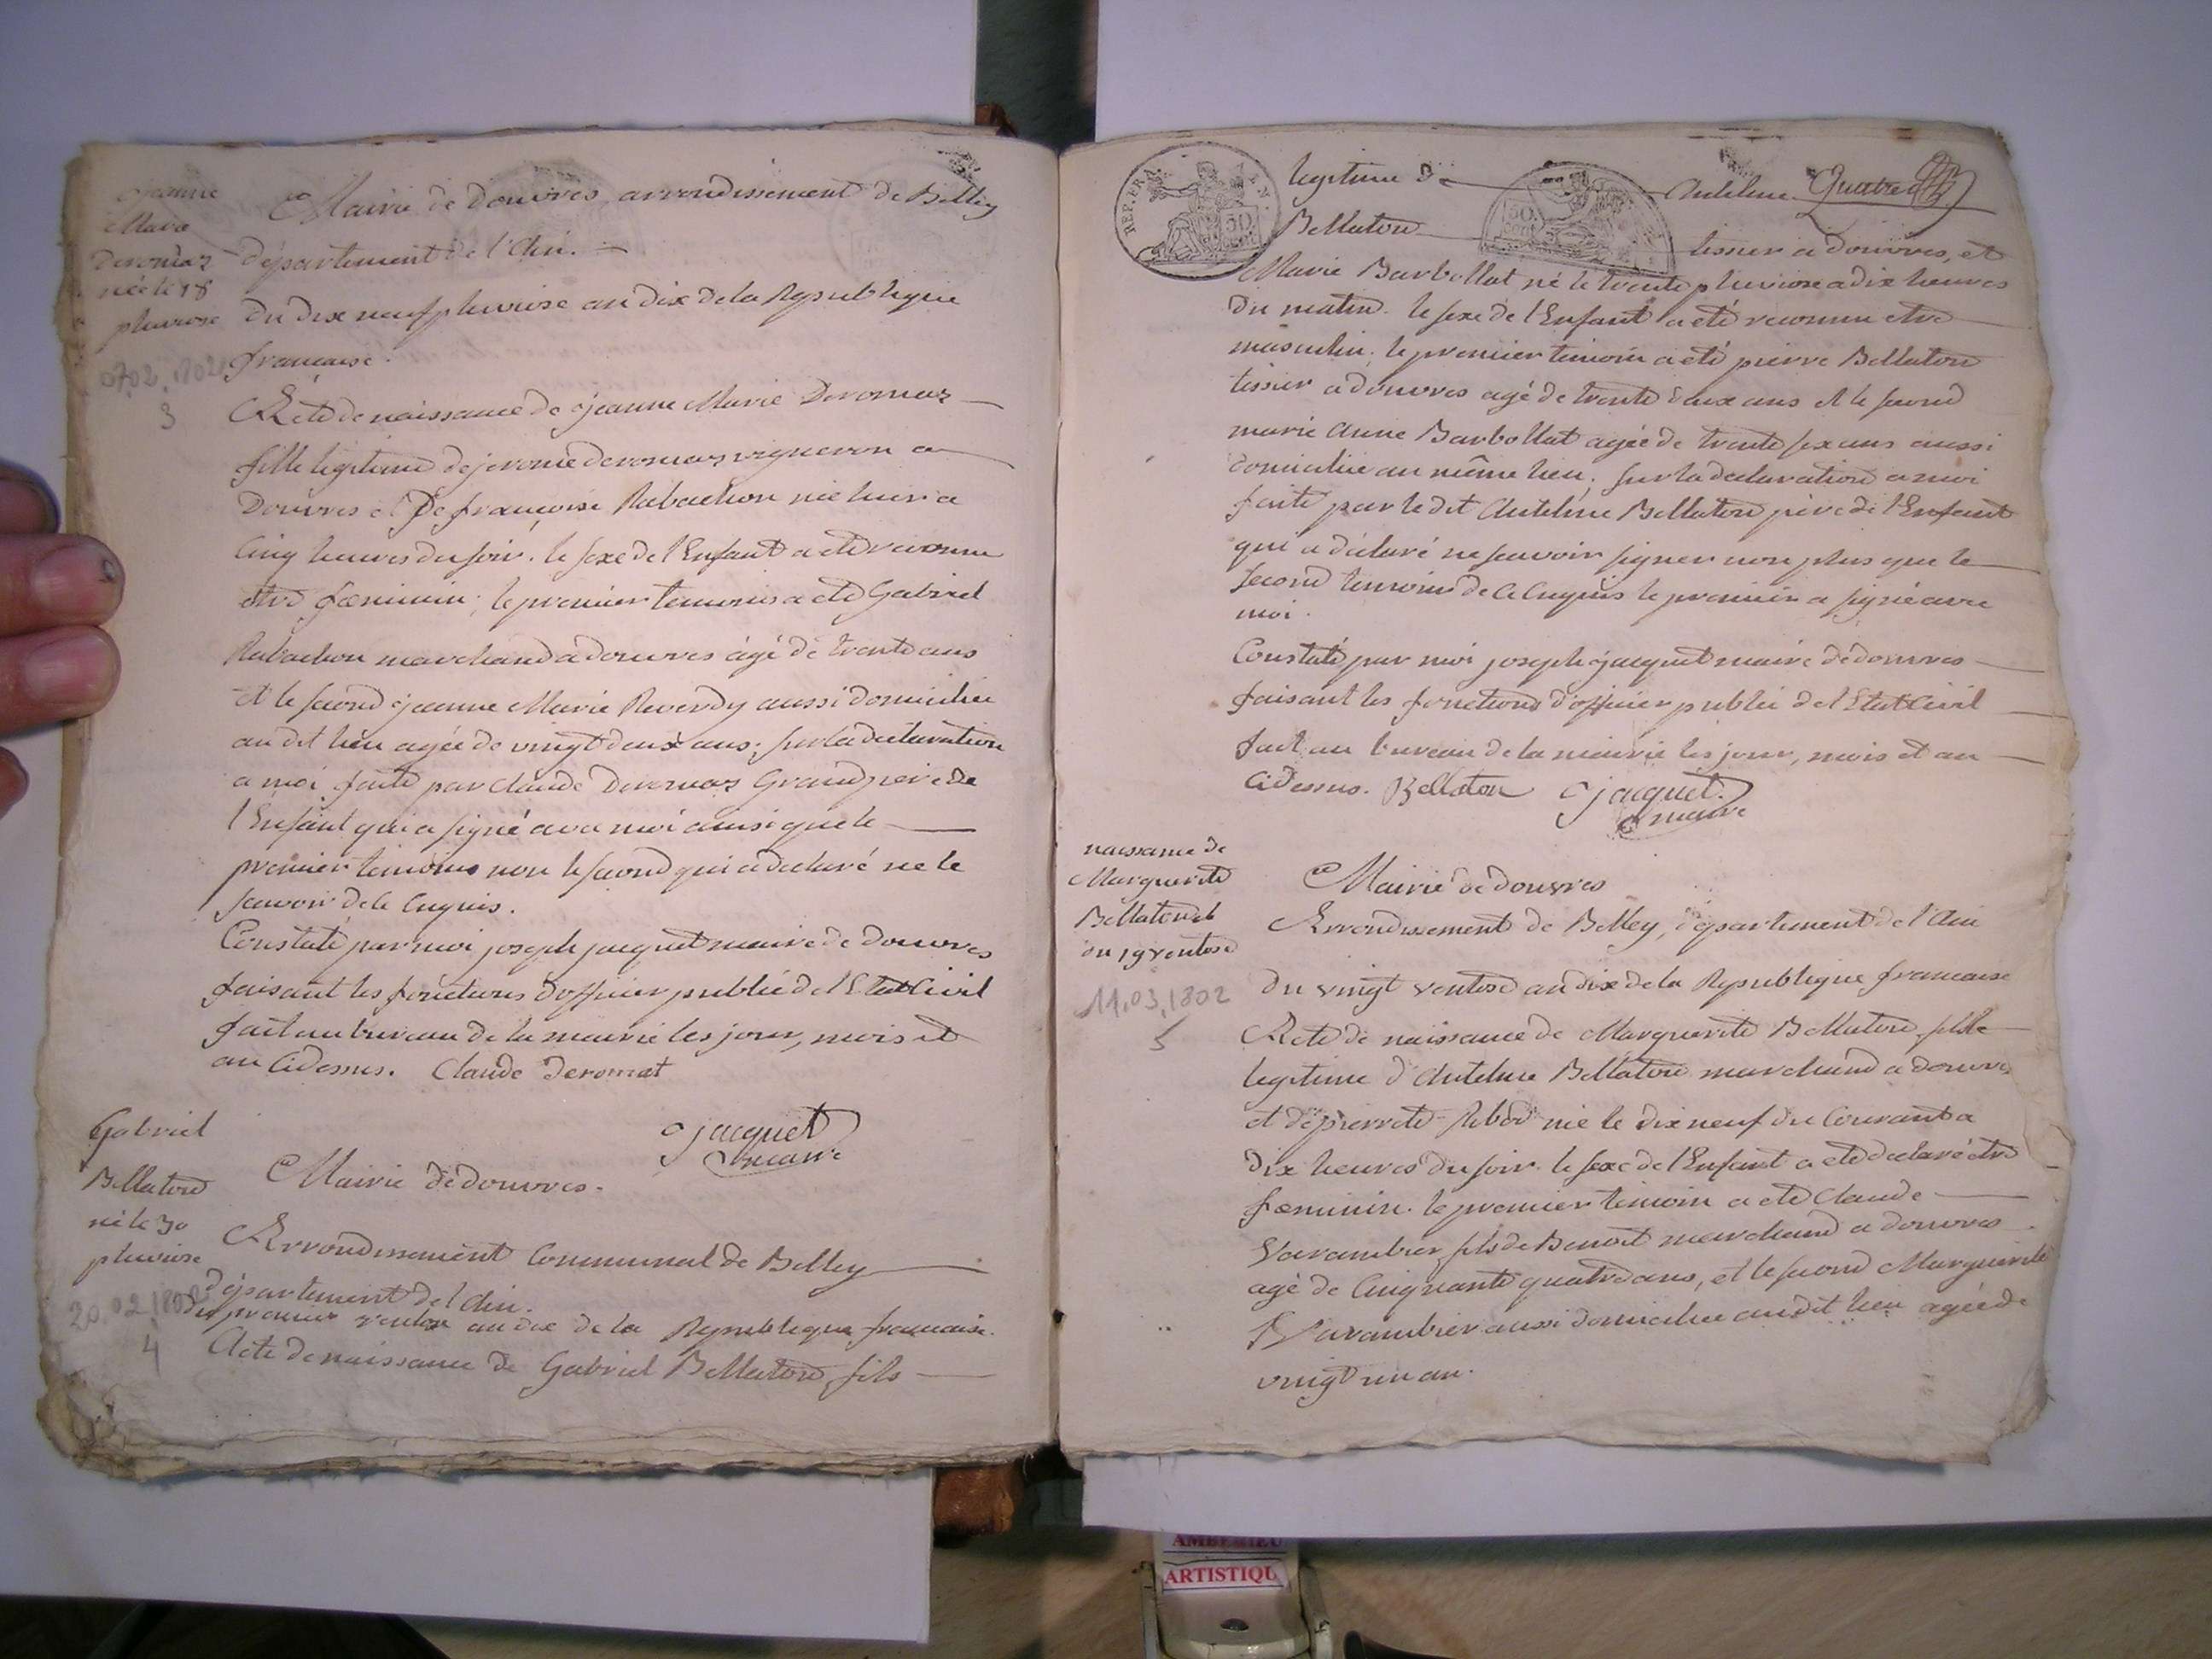 Jeanne
Marie
Deromas
née le 18
pluviose
07.02.1802
3
Mairie de Douvres, arrondissement de Belley
département de l'Ain.
du dix neuf pluviose an dix de la Republique
francaise.
Acte de naissance de jeanne Marie Deromas
fille legitime de jerome deromas vigneron a
Douvres et De françoise Rabachon née hier a
Cinq heures du soir. le sexe de l'Enfant a eté reconnu
etre fœminin; le premier temoins a eté Gabriel
Rabachon marchand à douvres âgé de trente ans
et le second jeanne Marie Reverdy aussi domiciliée
au dit lieu agée de vingt deux ans; sur la déclaration
a moi faite par Claude Deromas Grand père de
l'Enfant qui a signé avec moi ainsi que le
premier temoins non le second qui a declaré ne le
savoir de ce Enquis.
Constaté par moi joseph jacquet maire de douvres
faisant les fonctions d'officier public de l'Etat Civil
fait au bureau de la mairie les jour, mois et
an Cidessus. Claude Deromat
jacquet
maire
Gabriel
Bellaton
né le 30
pluviose
20.02.1802
4
Mairie de douvres.
Arrondissement Communal de Belley
département de l'Ain.
du premier ventose an dix de la Republique francaise.
Acte de naissance de Gabriel Bellaton, fils
REP. FRA.
50
50
legitime d' Antelme Quatre
Bellaton tissier a douvres, et
Marie Barbollat né le trente pluviose a dix heures
du matin. le sexe de l'Enfant a eté reconnu etre
masculin; le premier temoin a eté pierre Bellaton
tissier a douvres agé de trente deux ans et le second
marie Anne Barbollat agée de trente six ans aussi
domiciliée au même lieu; sur la declaration a moi
faite par le dit Antelme Bellaton père de l'Enfant
qui a déclaré ne savoir signer non plus que le
second temoins de ce Enquis le premier a signé avec
moi.
Constaté par moi joseph jacquet maire de douvres
faisant les fonctions d'officier public de l'Etat Civil
fait au bureau de la mairie les jour, mois et an
Cidessus. Bellaton jacquet
maire
naissance de
Marguerite
Bellaton
du 19 ventose
11.03.1802
5
Mairie de douvres
Arrondissement de Belley, département de l'Ain
du vingt ventose an dix de la Republique francaise
Acte de naissance de Marguerite Bellaton, fille
legitime d'Antelme Bellaton marchand a douvres
et de pierrete née le dix neuf du Courant a
dix heures du soir. le sexe de l'Enfant a eté declaré etre
fœminin. le premier temoin a eté Claude
Varambier fils de Benoit marchand a douvres
agé de Cinquante quatre ans, et le second Marguerite
Varambier aussi domiciliée audit lieu agée de
vingt un an.
AMBERIEU
ARTISTIQU